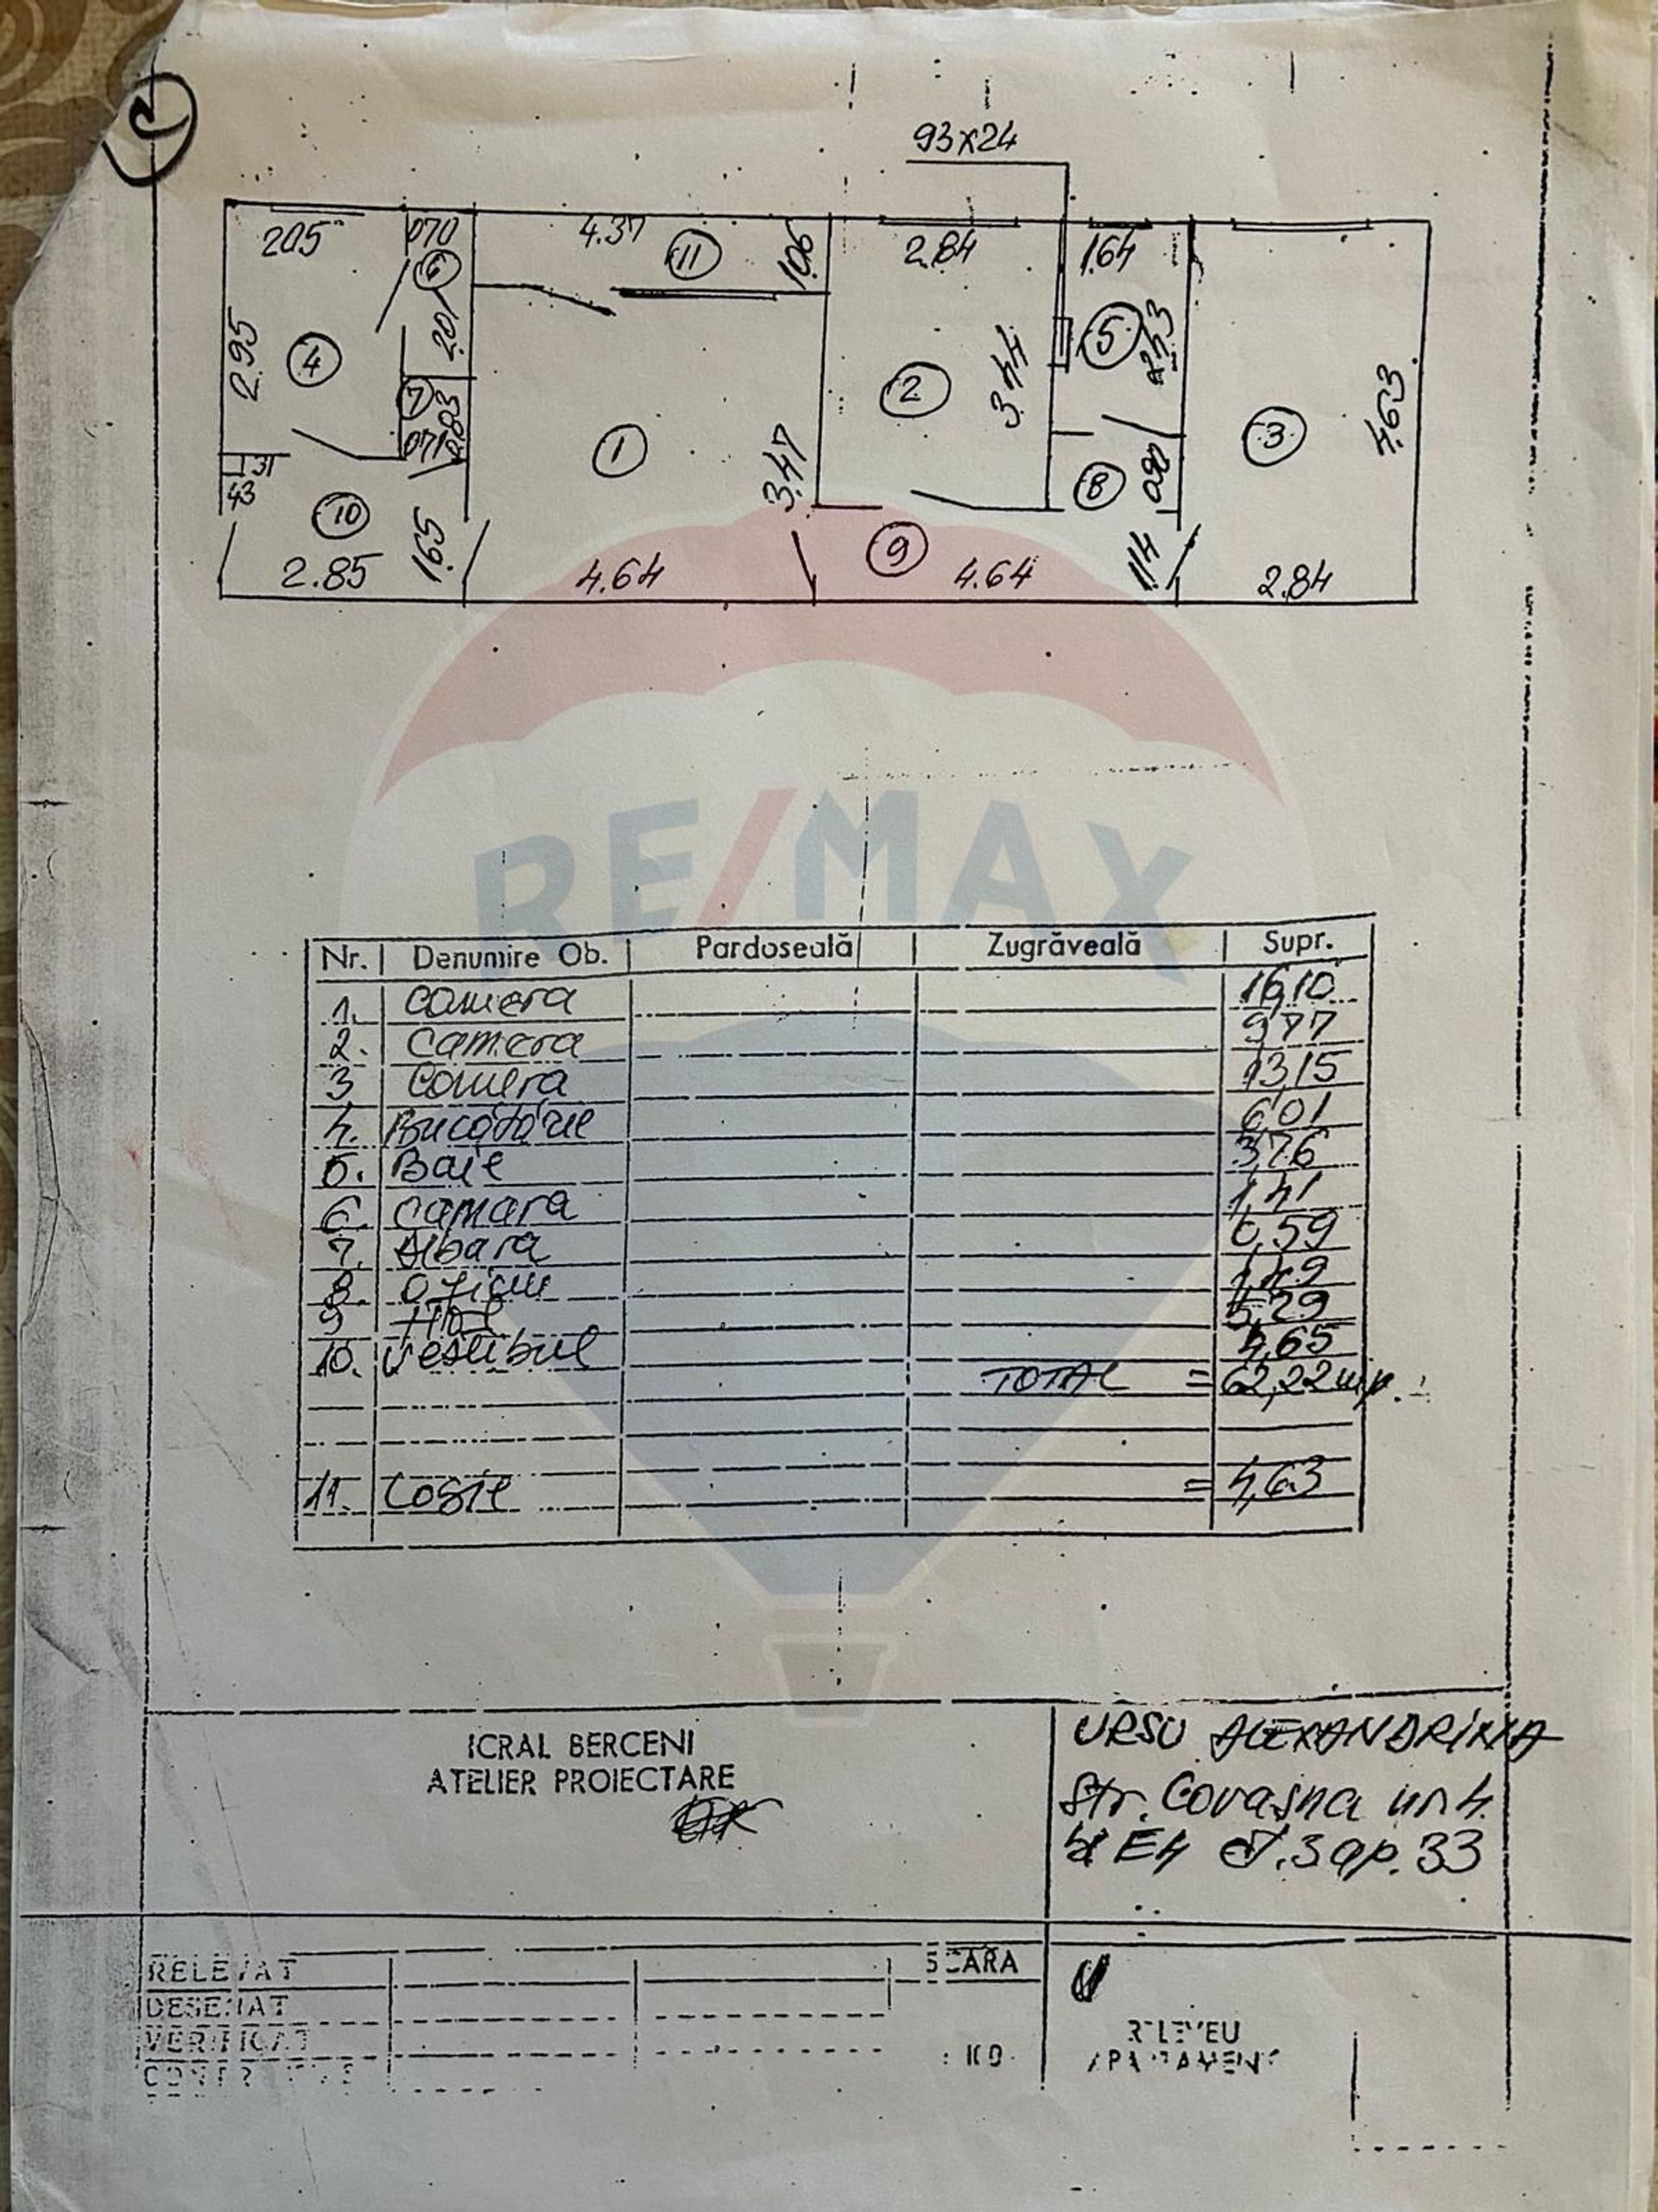 93x24
205 070 4.37 106 2.84 1.64
6 11
2.95 4 2.01 5 2.43
7 2 3.44
071 0.83 1 3.47 3 4.63
31
43 10 8 0.90
2.85 1.65 4.64 9 4.64 1.14 2.84
RE/MAX
Nr. Denumire Ob. Pardoseală Zugrăveală Supr.
1. Camera 16,10
2. Camera 9,77
3. Camera 13,15
4. Bucătărie 6,01
5. Baie 3,76
6. Camara 1,41
7. Debara 0,59
8. Oficiu 1,49
9 Hol 5,29
10. Vestibul 4,65
TOTAL = 62,22 mp.
11. Logie = 4,63
ICRAL BERCENI
ATELIER PROIECTARE
URSU ALEXANDRINA
Str. Covasna nr 4.
bl E4 et.3 ap. 33
RELEVAT SCARA
DESENAT
VERIFICAT
RELEVEU
APARTAMENT